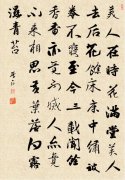 美人在時花滿堂美人
去后花餘床床中繡被
卷不寢至今三載聞餘
香香亦竟不滅人亦竟
不來相思黃葉落白露
濕青苔